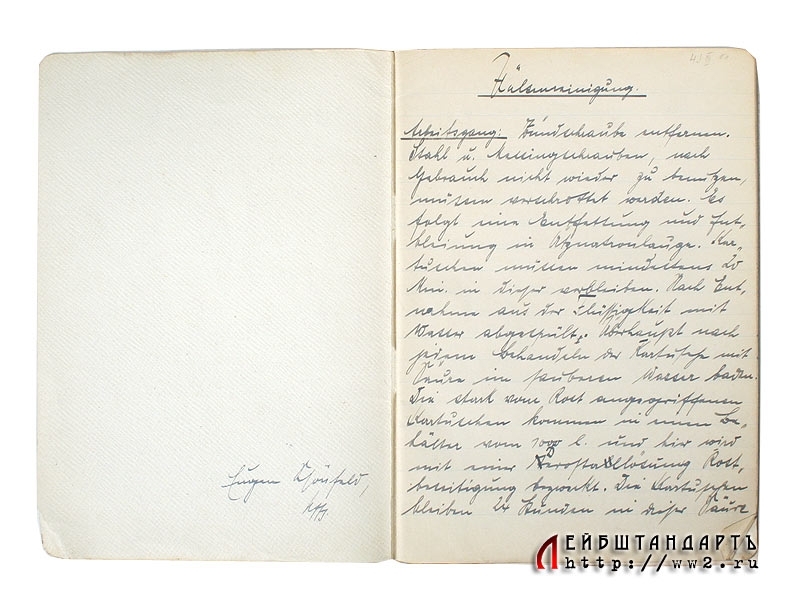 Eugen Schönfeld,
Hülsenreinigung.
Arbeitsgang: Zündschraube entfernen.
Stahl u. Messingschrauben, nach
Gebrauch nicht wieder zu benutzen,
müssen verschrottet werden. Es
folgt eine Entfettung und Ent-
bleiung in Äznatronlauge. Kar-
tuschen müssen mindestens 20
Min. in dieser verbleiben. Nach Ent-
nahme aus der Flüssigkeit mit
Wasser abgespült. Überhaupt nach
jedem Behandeln der Kartusche mit
Säure im sauberen Wasser baden.
Die stark vom Rost angegriffenen
Kartuschen kommen in einen Be-
hälter vom 1000 l. und hir wird
mit einer Rost-
beseitigung bezweckt. Die Kartuschen
bleiben 24 Stunden in dieser Säure
ЛЕЙБШТАНДАРТЪ
http://ww2.ru